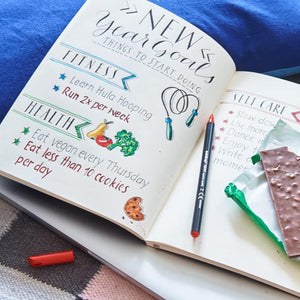 NEW
Year Goals
THINGS TO START DOING
FITNESS
Learn Hula Hooping
Run 2x per week
HEALTH
Eat vegan every Thursday
Eat less than 10 cookies
per day
SELF CARE
Slow
Dance
Enjoy
Write